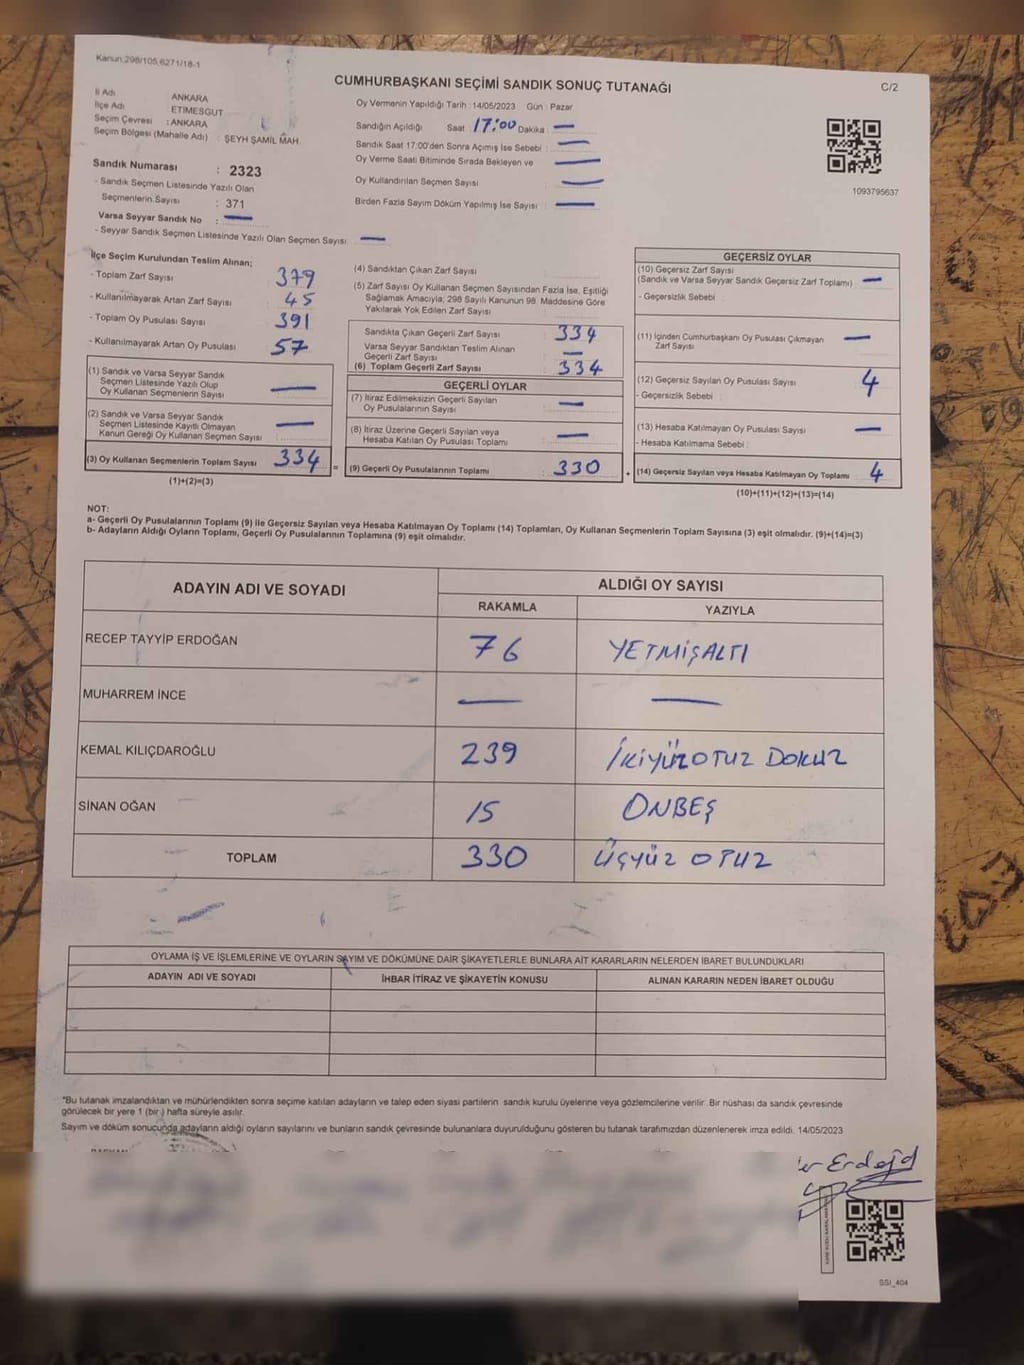 Kanun:298/105,6271/18-1
CUMHURBAŞKANI SEÇİMİ SANDIK SONUÇ TUTANAĞI
C/2
İl Adı ANKARA
İlçe Adı ETİMESGUT
Seçim Çevresi : ANKARA
Seçim Bölgesi (Mahalle Adı) : ŞEYH ŞAMİL MAH.
Oy Vermenin Yapıldığı Tarih : 14/05/2023 Gün : Pazar
Sandığın Açıldığı Saat 17:00 Dakika : —
Sandık Saat 17:00'den Sonra Açımış İse Sebebi : —
Oy Verme Saati Bitiminde Sırada Bekleyen ve —
Oy Kullandırılan Seçmen Sayısı : —
Birden Fazla Sayım Döküm Yapılmış İse Sayısı : —
1093795637
Sandık Numarası : 2323
- Sandık Seçmen Listesinde Yazılı Olan
Seçmenlerin Sayısı : 371
Varsa Seyyar Sandık No : —
- Seyyar Sandık Seçmen Listesinde Yazılı Olan Seçmen Sayısı : —
İlçe Seçim Kurulundan Teslim Alınan;
- Toplam Zarf Sayısı 379
- Kullanılmayarak Artan Zarf Sayısı : 45
- Toplam Oy Pusulası Sayısı 391
- Kullanılmayarak Artan Oy Pusulası 57
(1) Sandık ve Varsa Seyyar Sandık
Seçmen Listesinde Yazılı Olup
Oy Kullanan Seçmenlerin Sayısı : —
(2) Sandık ve Varsa Seyyar Sandık
Seçmen Listesinde Kayıtlı Olmayan
Kanun Gereği Oy Kullanan Seçmen Sayısı : —
(3) Oy Kullanan Seçmenlerin Toplam Sayısı : 334 =
(1)+(2)=(3)
(4) Sandıktan Çıkan Zarf Sayısı :
(5) Zarf Sayısı Oy Kullanan Seçmen Sayısından Fazla İse, Eşitliği
Sağlamak Amacıyla; 298 Sayılı Kanunun 98. Maddesine Göre
Yakılarak Yok Edilen Zarf Sayısı :
Sandıkta Çıkan Geçerli Zarf Sayısı : 334
Varsa Seyyar Sandıktan Teslim Alınan
Geçerli Zarf Sayısı : —
(6) Toplam Geçerli Zarf Sayısı : 334
GEÇERLİ OYLAR
(7) İtiraz Edilmeksizin Geçerli Sayılan
Oy Pusulalarının Sayısı : —
(8) İtiraz Üzerine Geçerli Sayılan veya
Hesaba Katılan Oy Pusulası Toplamı : —
(9) Geçerli Oy Pusulalarının Toplamı : 330 +
GEÇERSİZ OYLAR
(10) Geçersiz Zarf Sayısı
(Sandık ve Varsa Seyyar Sandık Geçersiz Zarf Toplamı) : —
- Geçersizlik Sebebi :
(11) İçinden Cumhurbaşkanı Oy Pusulası Çıkmayan
Zarf Sayısı : —
(12) Geçersiz Sayılan Oy Pusulası Sayısı : 4
- Geçersizlik Sebebi :
(13) Hesaba Katılmayan Oy Pusulası Sayısı : —
- Hesaba Katılmama Sebebi :
(14) Geçersiz Sayılan veya Hesaba Katılmayan Oy Toplamı : 4
(10)+(11)+(12)+(13)=(14)
NOT:
a- Geçerli Oy Pusulalarının Toplamı (9) ile Geçersiz Sayılan veya Hesaba Katılmayan Oy Toplamı (14) Toplamları, Oy Kullanan Seçmenlerin Toplam Sayısına (3) eşit olmalıdır. (9)+(14)=(3)
b- Adayların Aldığı Oyların Toplamı, Geçerli Oy Pusulalarının Toplamına (9) eşit olmalıdır.
ADAYIN ADI VE SOYADI ALDIĞI OY SAYISI
RAKAMLA YAZIYLA
RECEP TAYYİP ERDOĞAN 76 YETMİŞALTI
MUHARREM İNCE — —
KEMAL KILIÇDAROĞLU 239 İKİYÜZOTUZ DOKUZ
SİNAN OĞAN 15 ONBEŞ
TOPLAM 330 ÜÇYÜZ OTUZ
OYLAMA İŞ VE İŞLEMLERİNE VE OYLARIN SAYIM VE DÖKÜMÜNE DAİR ŞİKAYETLERLE BUNLARA AİT KARARLARIN NELERDEN İBARET BULUNDUKLARI
ADAYIN ADI VE SOYADI İHBAR İTİRAZ VE ŞİKAYETİN KONUSU ALINAN KARARIN NEDEN İBARET OLDUĞU
*Bu tutanak imzalandıktan ve mühürlendikten sonra seçime katılan adayların ve talep eden siyasi partilerin sandık kurulu üyelerine veya gözlemcilerine verilir. Bir nüshası da sandık çevresinde
görülecek bir yere 1 (bir ) hafta süreyle asılır.
Sayım ve döküm sonucunda adayların aldığı oyların sayılarını ve bunların sandık çevresinde bulunanlara duyurulduğunu gösteren bu tutanak tarafımızdan düzenlenerek imza edildi. 14/05/2023
SSI_404